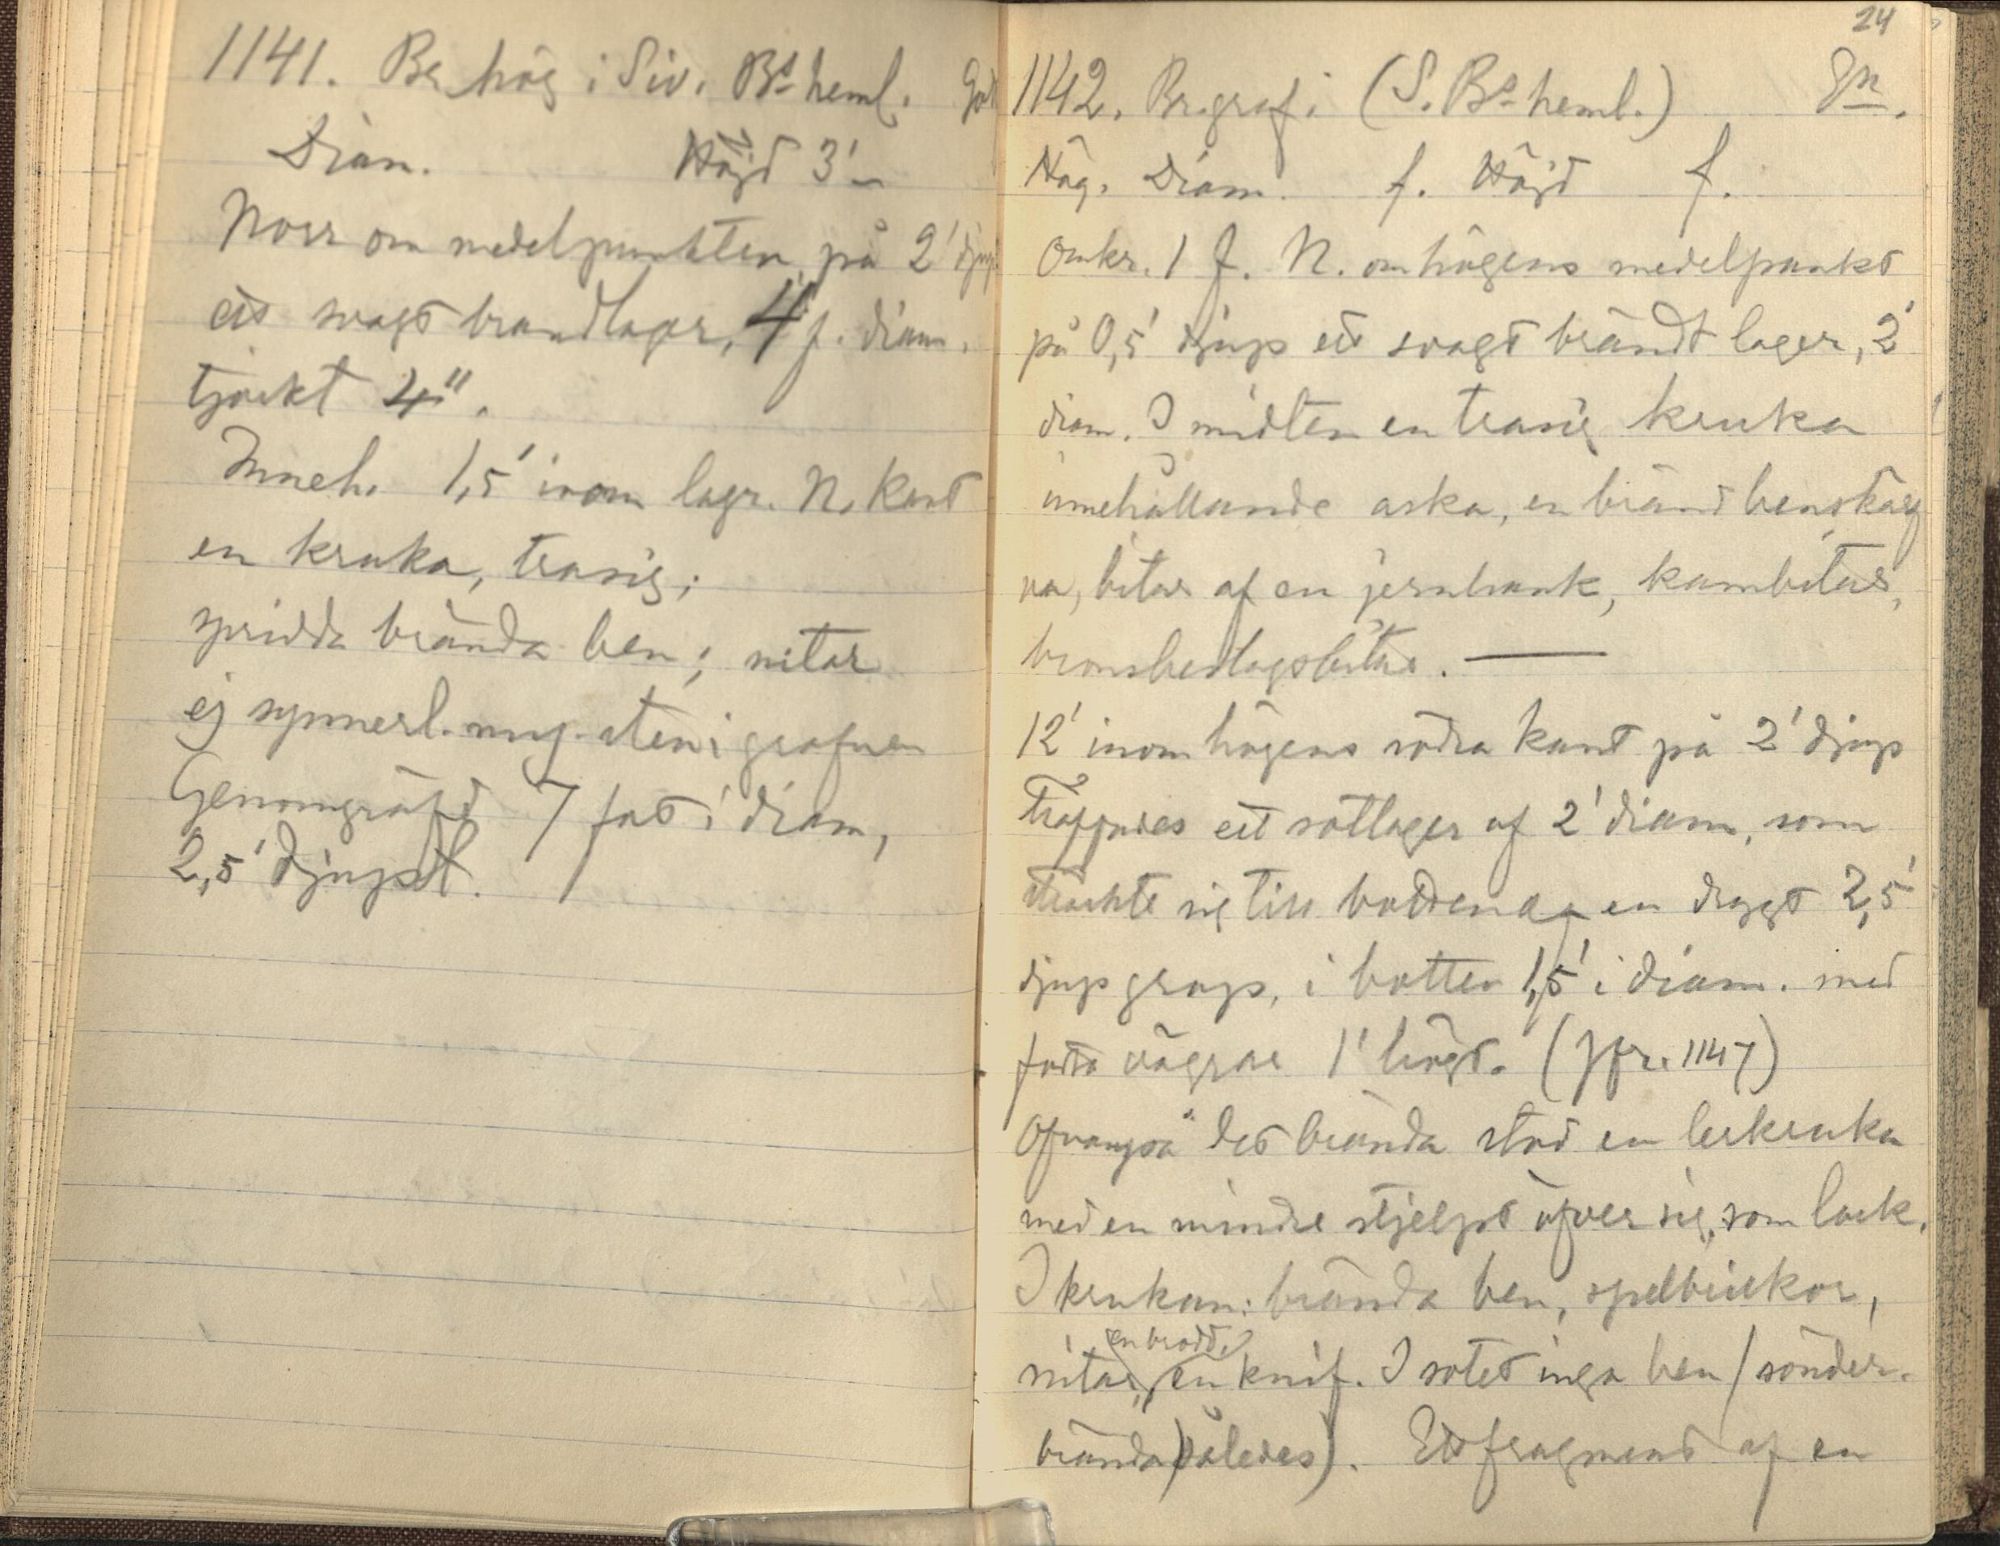 1141. Br. hög i Siv. Bs heml.
Diam. Höjd 3'
Norr om medelpunkten, på 2' djup
ett svagt brandlager, 4 f. diam.
tjockt 4".
Inneh. 1,5' inom lagr. N. kant
en kruka, trasig;
spridda brända ben; nitar
ej synnerl. myc. sten i grafven
Genomgräfd 7 fot i diam,
2,5' djupt.
24
1142. Br.graf i (S. Bs heml.)
Hög. Diam. f. Höjd f.
Omkr. 1 f. N. om högens medelpunkt
på 0,5' djup ett svagt brändt lager, 2'
diam. I midten en trasig kruka
innehållande aska, en bränd benskärf
va, bitar af en jernhank, kambitar,
bronsbeslagsbitar. —
12' inom högens södra kant på 2' djup
träffades ett sotlager af 2' diam, som
sträckte sig till bottten af en drygt 2,5'
djup grop, i botten 1,5' i diam. med
fasta väggar 1' högt. (Jfr. 1147)
Ofvanpå det brända stod en lerkruka
med en mindre stjelpt öfver sig, som lock.
I krukan: brända ben, spelbrickor,
en brodd,
nitar, en knif. I sotet inga ben (sönder-
brända således). Ett fragment af en